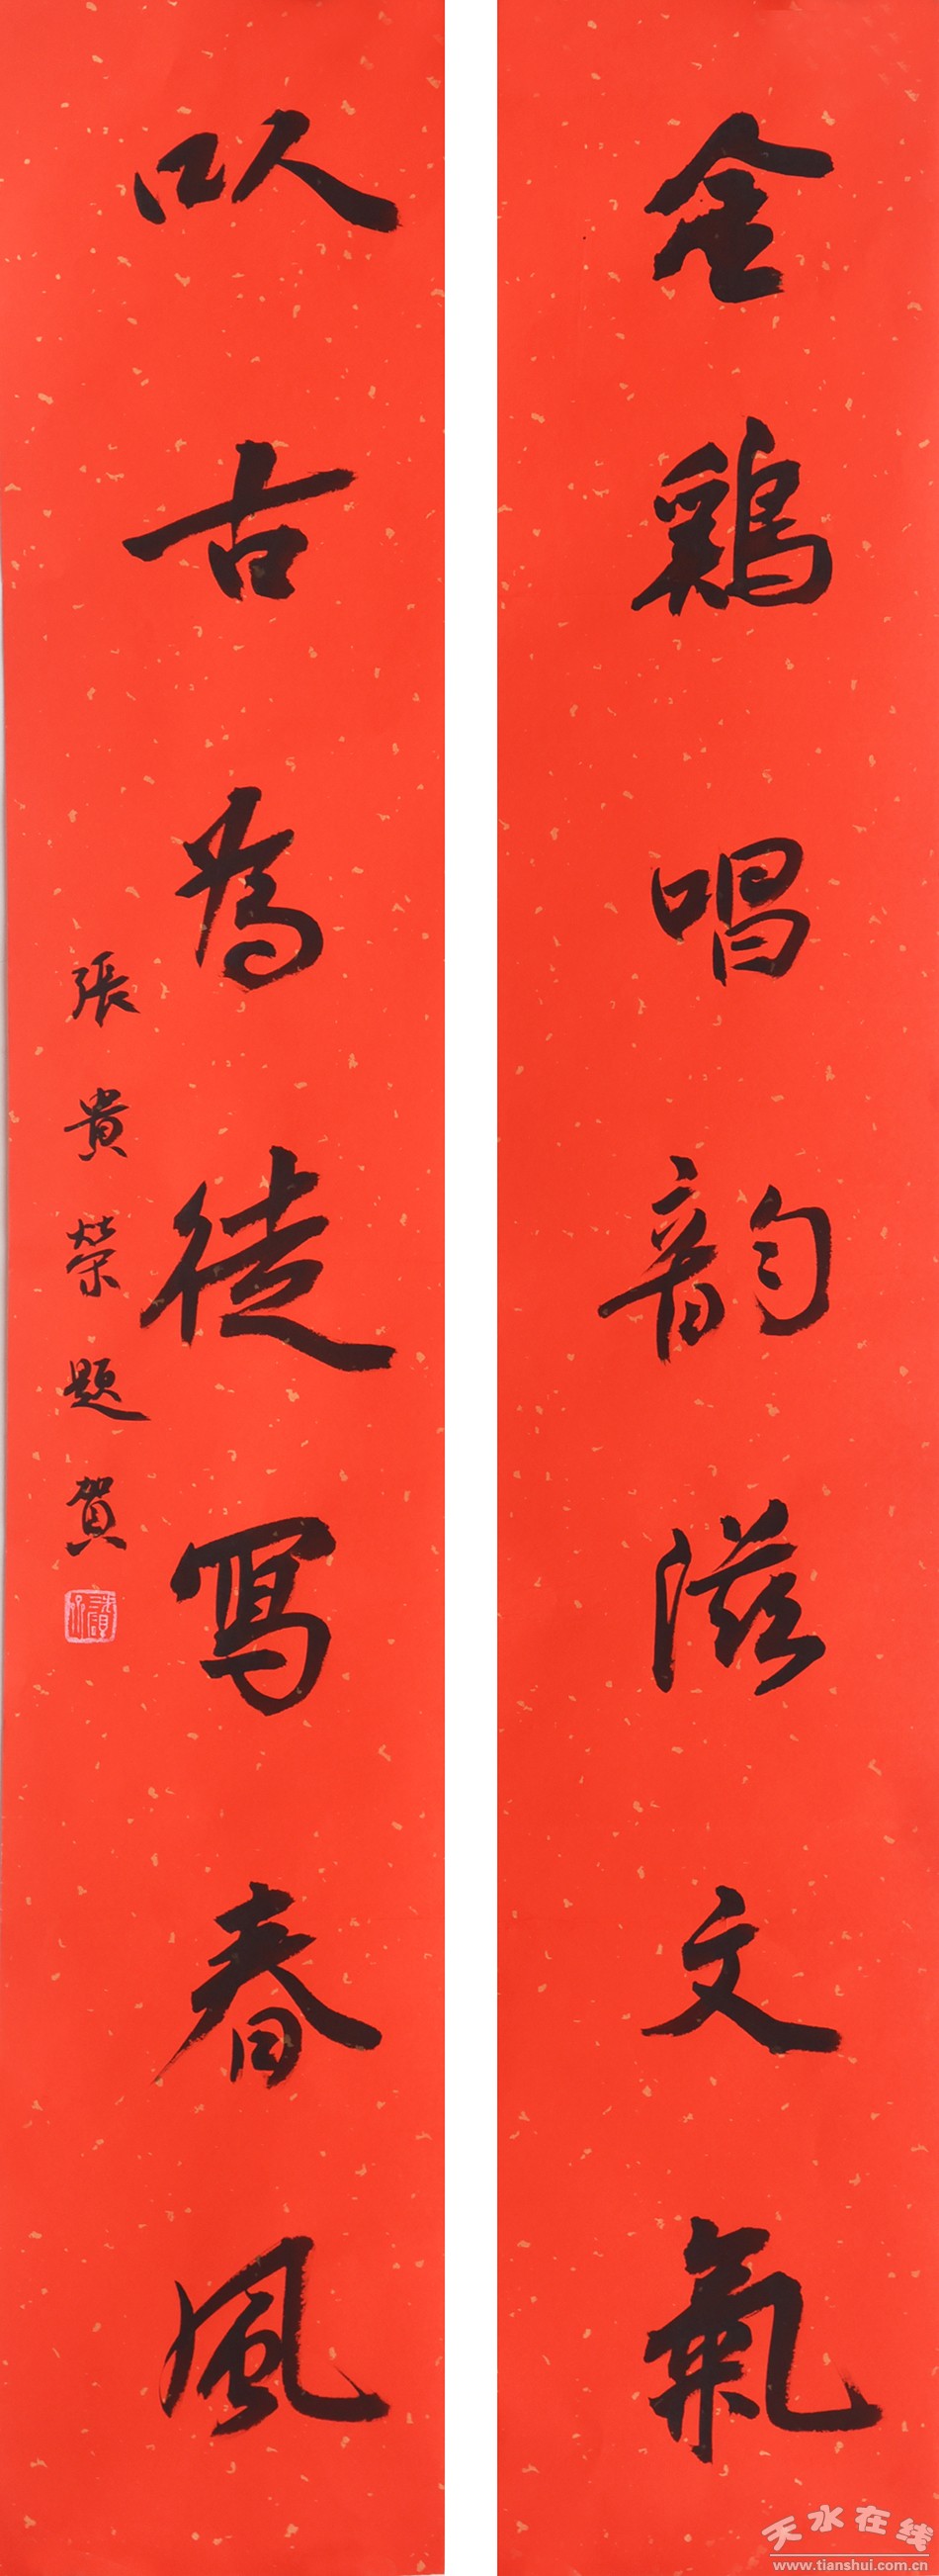 金鷄唱韵滋文氣
以古為徒寫春風
張貴榮題賀
天水在线
www.tianshui.com.cn